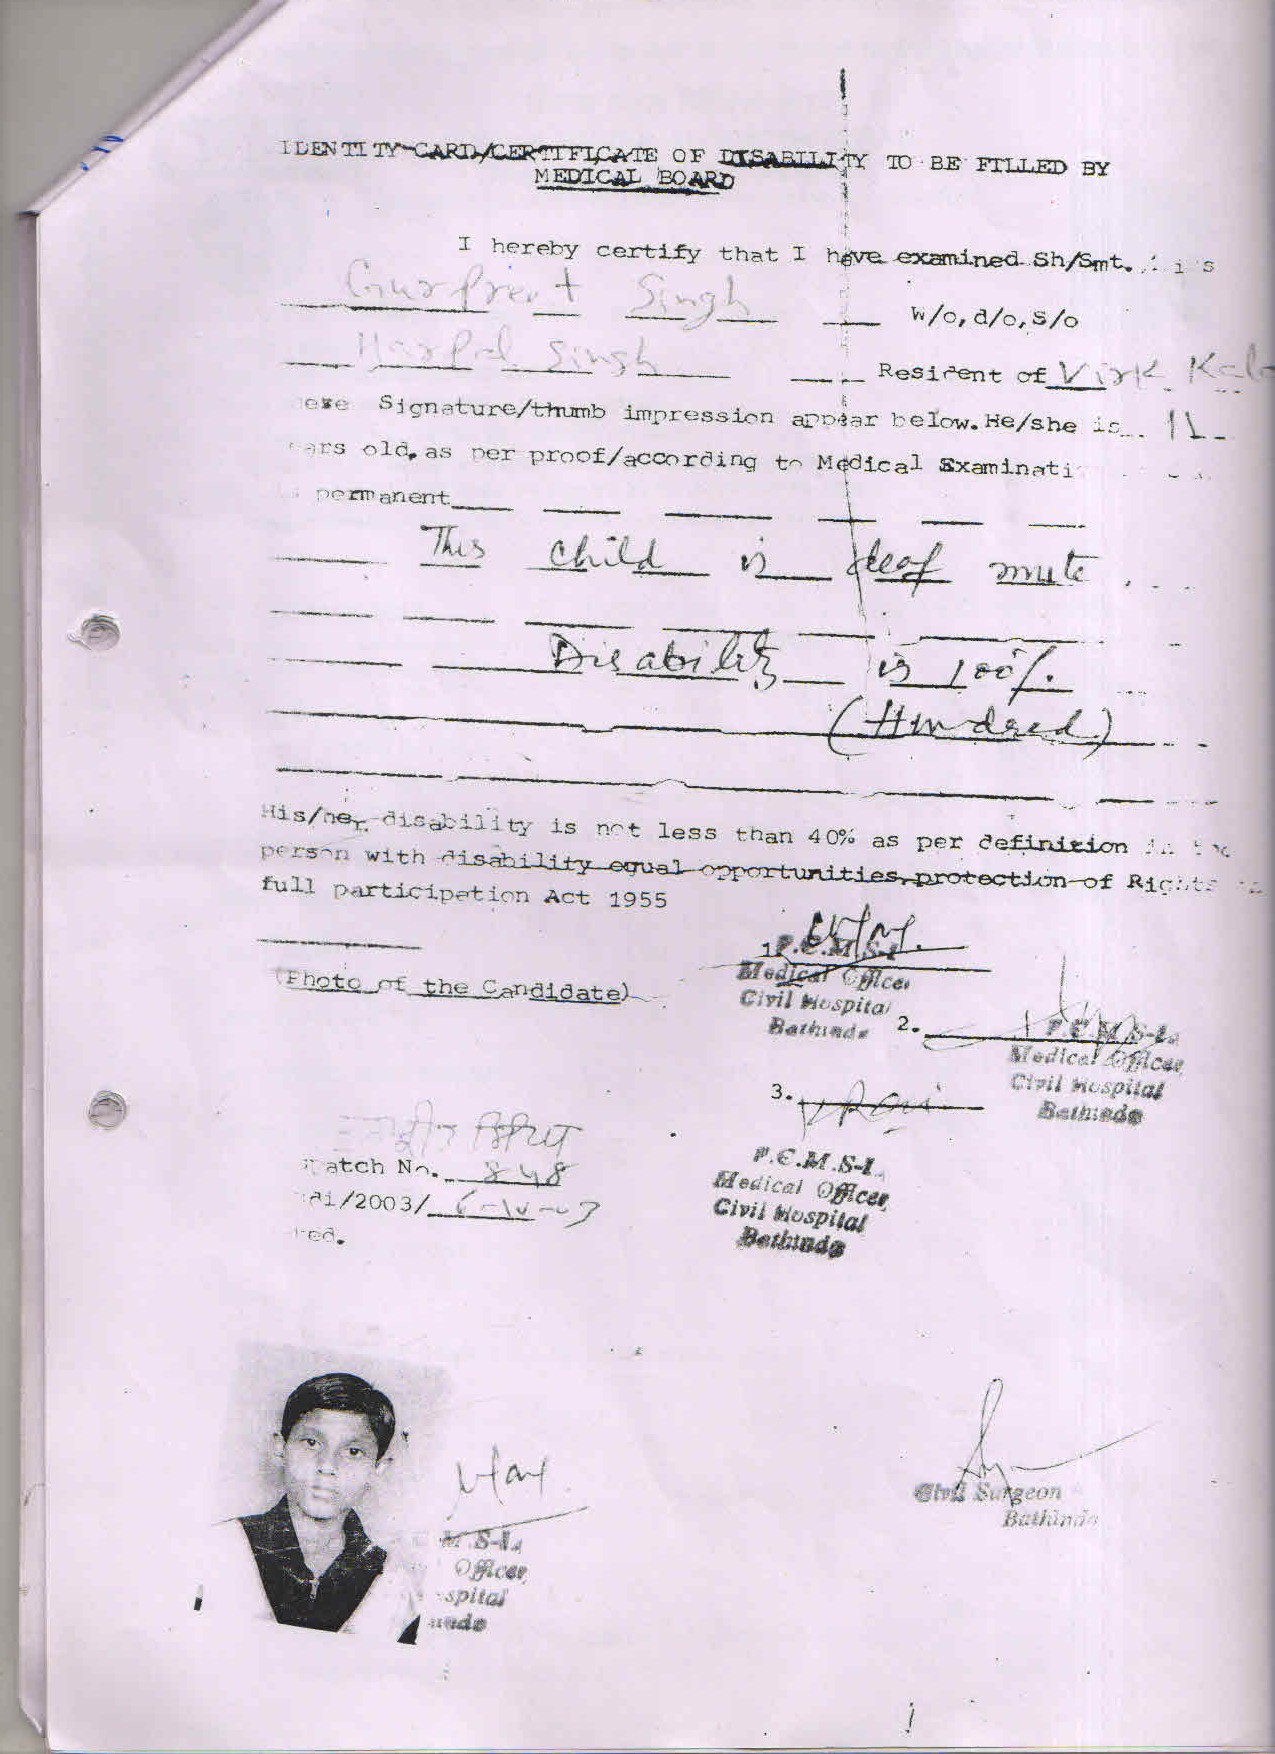 IDENTITY CARD/CERTIFICATE OF DISABILITY TO BE FILLED BY
MEDICAL BOARD
I hereby certify that I have examined Sh/Smt.
Gurpreet Singh W/o,d/o,S/o
Harpal Singh Resident of Virk
Signature/thumb impression appear below.He/she is
ars old,as per proof/according to Medical Examinati
permanent
This child is deaf mute
Disability is 100%.
(Hundred)
His/her disability is not less than 40% as per definition
person with disability equal opportunities,protection of Rights
full participation Act 1955
1
P.C.M.S-I
Medical Officer
Civil Hospital
Bathinda
(Photo of the Candidate)
2.
P.C.M.S-I.
Medical Officer,
Civil Hospital
Bathinda
3.
P.C.M.S-I.
Medical Officer,
Civil Hospital
Bathinda
patch No. 848
/2003/
M.S-I.,
Officer,
spital
Civil Surgeon
Bathinda